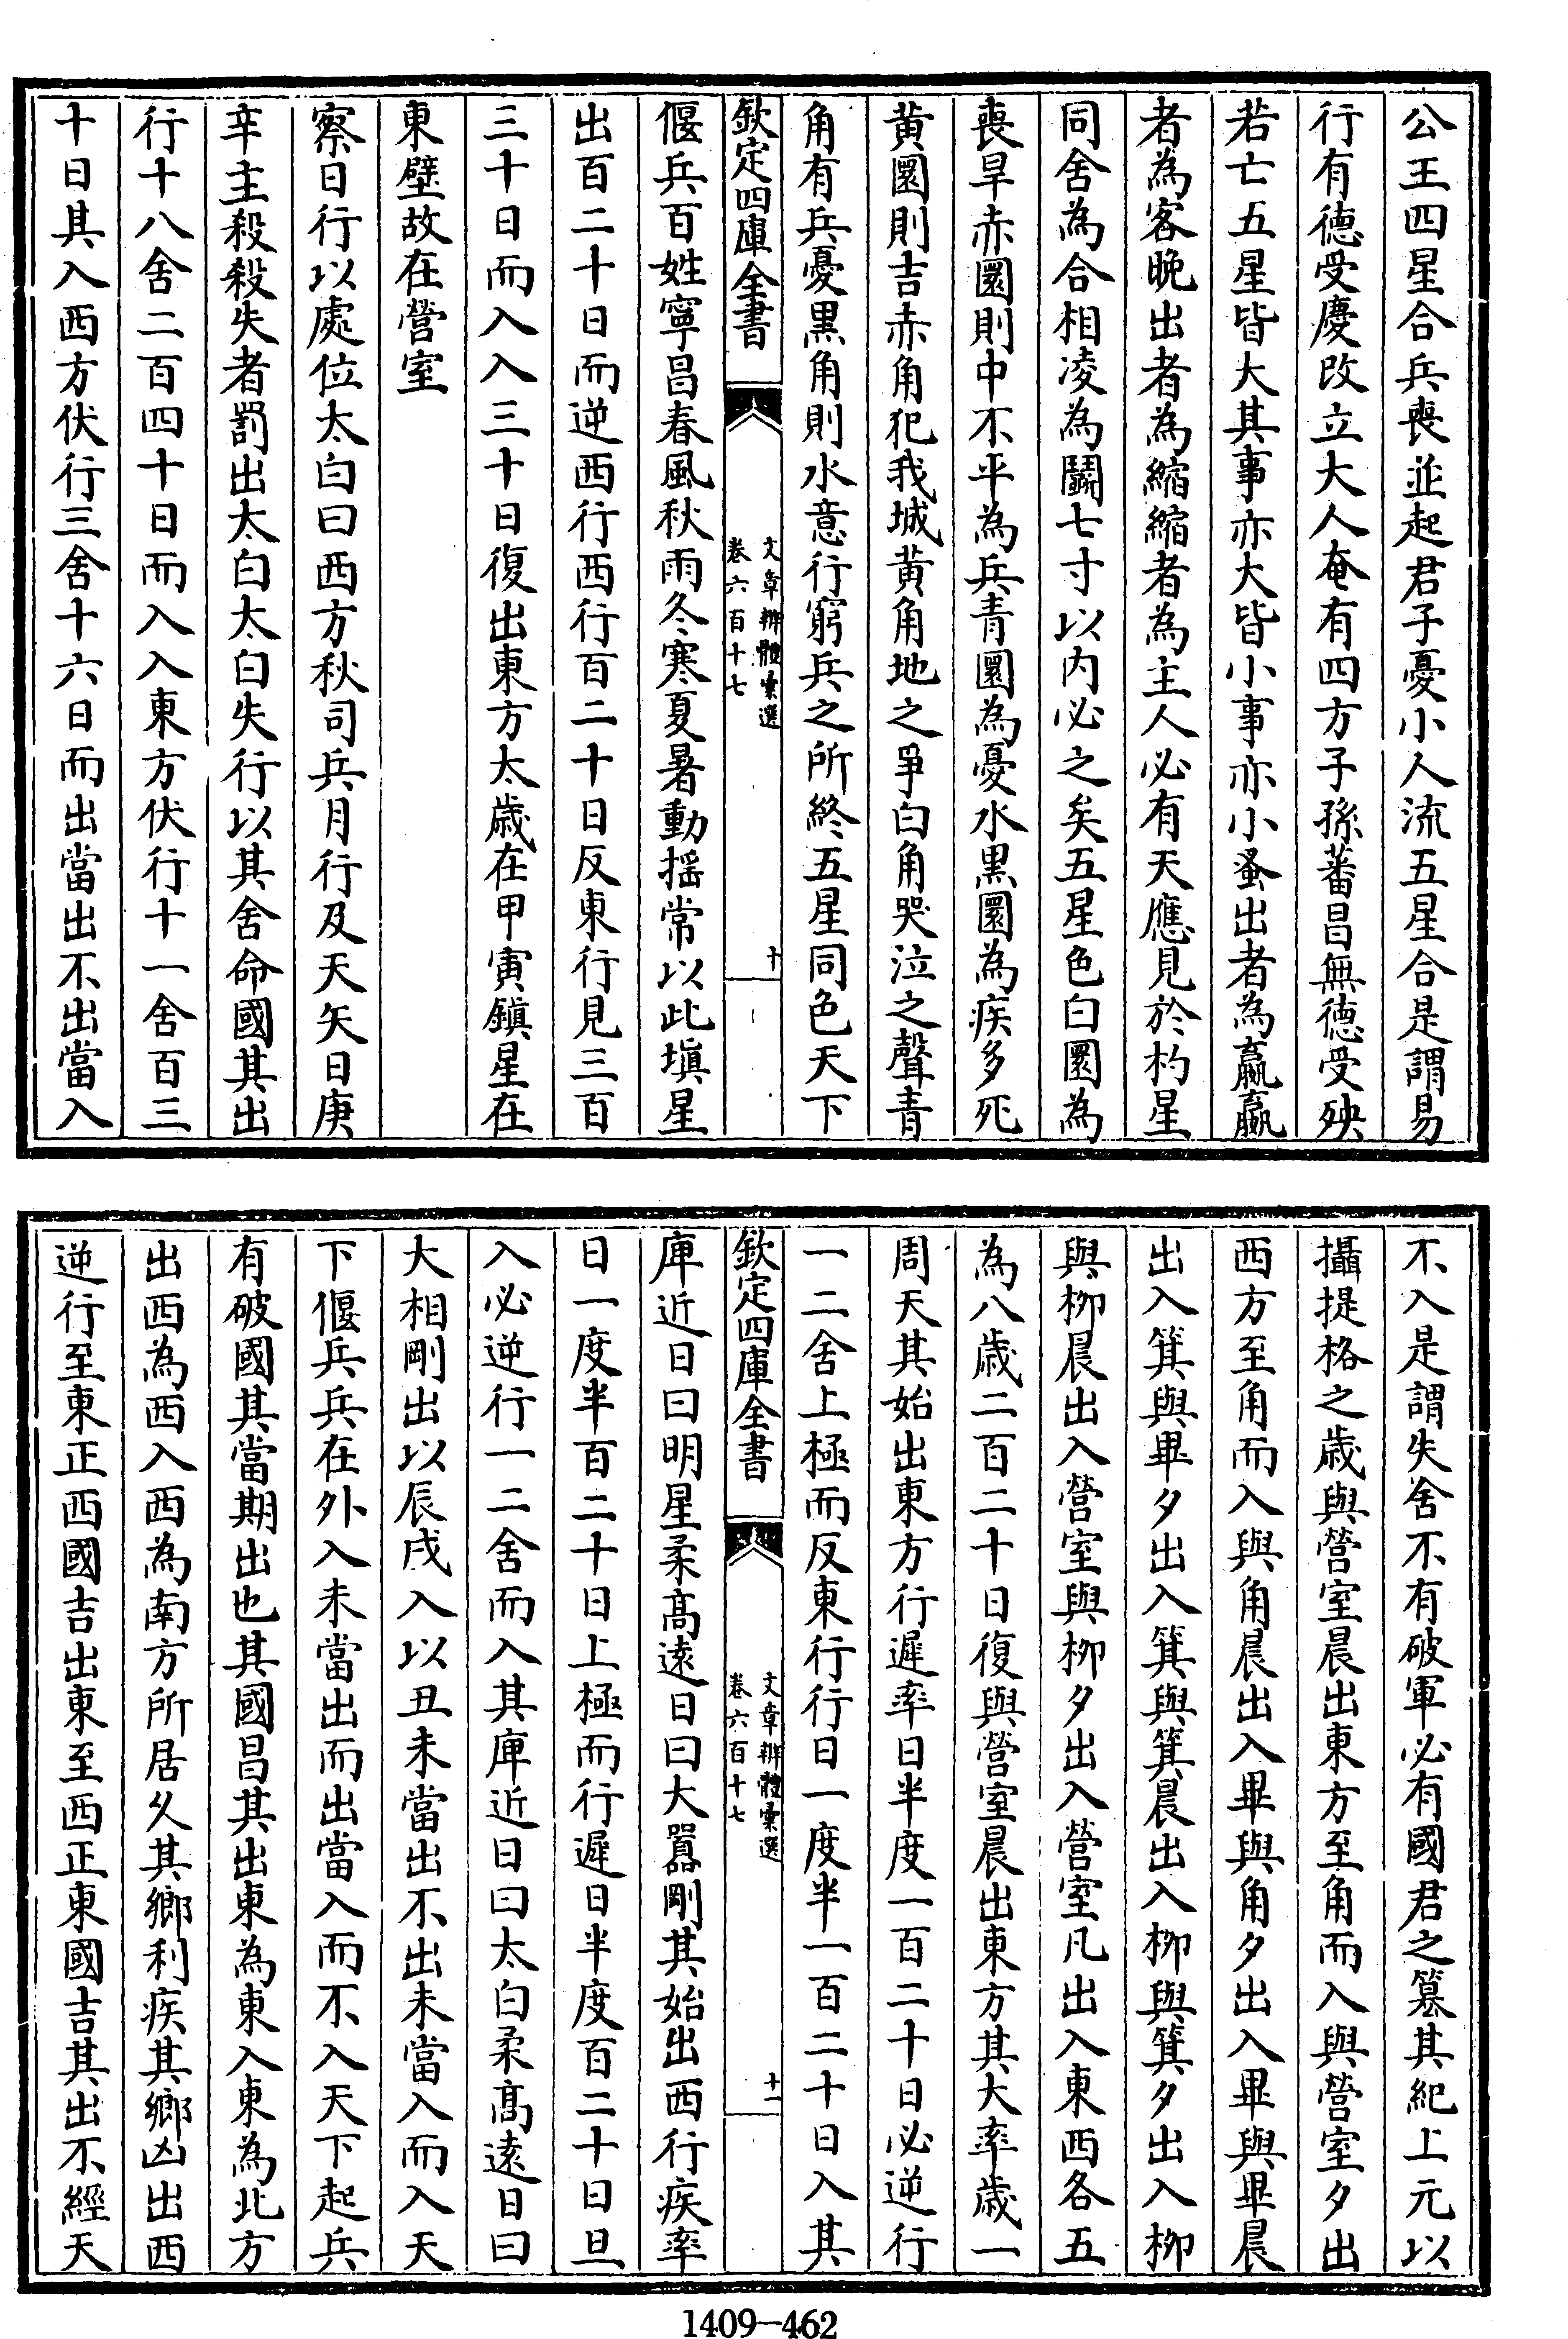 公王四星合兵喪並起君子憂小人流五星合是謂易
行有德受慶改立大人奄有四方子孫蕃昌無德受殃
若亡五星皆大其事亦大皆小事亦小蚤出者為贏贏
者為客晚出者為縮縮者為主人必有天應見於杓星
同舍為合相凌為鬭七寸以内必之矣五星色白圜為
喪旱赤圜則中不平為兵青圜為憂水黒圜為疾多死
黄圜則吉赤角犯我城黄角地之爭白角哭泣之聲青
角有兵憂黒角則水意行窮兵之所終五星同色天下
欽定四庫全書
文章辨體彙選
卷六百十七
十
偃兵百姓寧昌春風秋雨冬寒夏暑動摇常以此塡星
出百二十日而逆西行西行百二十日反東行見三百
三十日而入入三十日復出東方太歳在甲寅鎮星在
東壁故在營室
察日行以處位太白曰西方秋司兵月行及天矢日庚
辛主殺殺失者罰出太白太白失行以其舍命國其出
行十八舍二百四十日而入入東方伏行十一舍百三
十日其入西方伏行三舍十六日而出當出不出當入
不入是謂失舍不有破軍必有國君之簒其紀上元以
攝提格之歳與營室晨出東方至角而入與營室夕出
西方至角而入與角晨出入畢與角夕出入畢與畢晨
出入箕與畢夕出入箕與箕晨出入柳與箕夕出入柳
與柳晨出入營室與柳夕出入營室凡出入東西各五
為八歳二百二十日復與營室晨出東方其大率歳一
周天其始出東方行遲率日半度一百二十日必逆行
一二舍上極而反東行行日一度半一百二十日入其
欽定四庫全書
文章辨體彙選
卷六百十七
十一
庳近日曰明星柔髙逺日曰大囂剛其始出西行疾率
日一度半百二十日上極而行遲日半度百二十日旦
入必逆行一二舍而入其庳近日曰太白柔髙逺日曰
大相剛出以辰戌入以丑未當出不出未當入而入天
下偃兵兵在外入未當出而出當入而不入天下起兵
有破國其當期出也其國昌其出東為東入東為北方
出西為西入西為南方所居久其鄉利疾其鄉凶出西
逆行至東正西國吉出東至西正東國吉其出不經天
1409-462